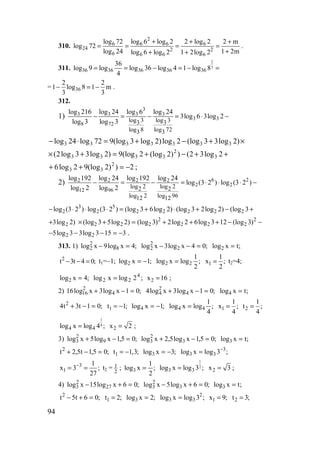 310. log₂₄ 72 = log₆ 72 / log₆ 24 = (log₆ 6² + log₆ 2) / (log₆ 6 + log₆ 2²) = (2 + log₆ 2) / (1 + 2log₆ 2) = (2 + m) / (1 + 2m) .
311. log₃₆ 9 = log₃₆ 36/4 = log₃₆ 36 − log₃₆ 4 = 1 − log₃₆ 8^(2/3) =
= 1 − 2/3 log₃₆ 8 = 1 − 2/3 m .
312.
1) log₃ 216 / log₈ 3 − log₃ 24 / log₇₂ 3 = log₃ 6³ / (log₃ 3 / log₃ 8) − log₃ 24 / (log₃ 3 / log₃ 72) = 3log₃ 6·3log₃ 2 −
− log₃ 24 · log₃ 72 = 9(log₃ 3 + log₃ 2)log₃ 2 − (log₃ 3 + 3log₃ 2) ×
× (2log₃ 3 + 3log₃ 2) = 9(log₃ 2 + (log₃ 2)²) − (2 + 3log₃ 2 +
+ 6log₃ 2 + 9(log₃ 2)²) = −2 ;
2) log₂ 192 / log₁₂ 2 − log₂ 24 / log₉₆ 2 = log₂ 192 / (log₂ 2 / log₂ 12) − log₂ 24 / (log₂ 2 / log₂ 96) = log₂(3·2⁶)·log₂(3·2²) −
− log₂(3·2³)·log₂(3·2⁵) = (log₂ 3 + 6log₂ 2)·(log₂ 3 + 2log₂ 2) − (log₂ 3 +
+3log₂ 2) ×(log₂ 3 + 5log₂ 2) = (log₂ 3)² + 2log₂ 2 + 6log₂ 3 + 12 − (log₂ 3)² −
−5log₂ 3 − 3log₂ 3 − 15 = −3 .
313. 1) log₂² x − 9log₈ x = 4; log₂² x − 3log₂ x − 4 = 0; log₂ x = t;
t² − 3t − 4 = 0; t₁=–1; log₂ x = −1; log₂ x = log₂ 1/2 ; x₁ = 1/2 ; t₂=4;
log₂ x = 4; log₂ x = log₂ 2⁴ ; x₂ = 16 ;
2) 16log₁₆² x + 3log₄ x − 1 = 0; 4log₄² x + 3log₄ x − 1 = 0; log₄ x = t;
4t² + 3t − 1 = 0; t₁ = −1; log₄ x = −1; log₄ x = log₄ 1/4 ; x₁ = 1/4 ; t₂ = 1/4 ;
log₄ x = log₄ 4^(1/2) ; x₂ = 2 ;
3) log₃² x + 5log₉ x − 1,5 = 0; log₃² x + 2,5log₃ x − 1,5 = 0; log₃ x = t;
t² + 2,5t − 1,5 = 0; t₁ = −1,3; log₃ x = −3; log₃ x = log₃ 3⁻³ ;
x₁ = 3⁻³ = 1/27 ; t₂ = 1/2 ; log₃ x = 1/2 ; log₃ x = log₃ 3^(1/2) ; x₂ = √3 ;
4) log₃² x − 15log₂₇ x + 6 = 0; log₃² x − 5log₃ x + 6 = 0; log₃ x = t;
t² − 5t + 6 = 0; t₁ = 2; log₃ x = 2; log₃ x = log₃ 3² ; x₁ = 9; t₂ = 3;
94